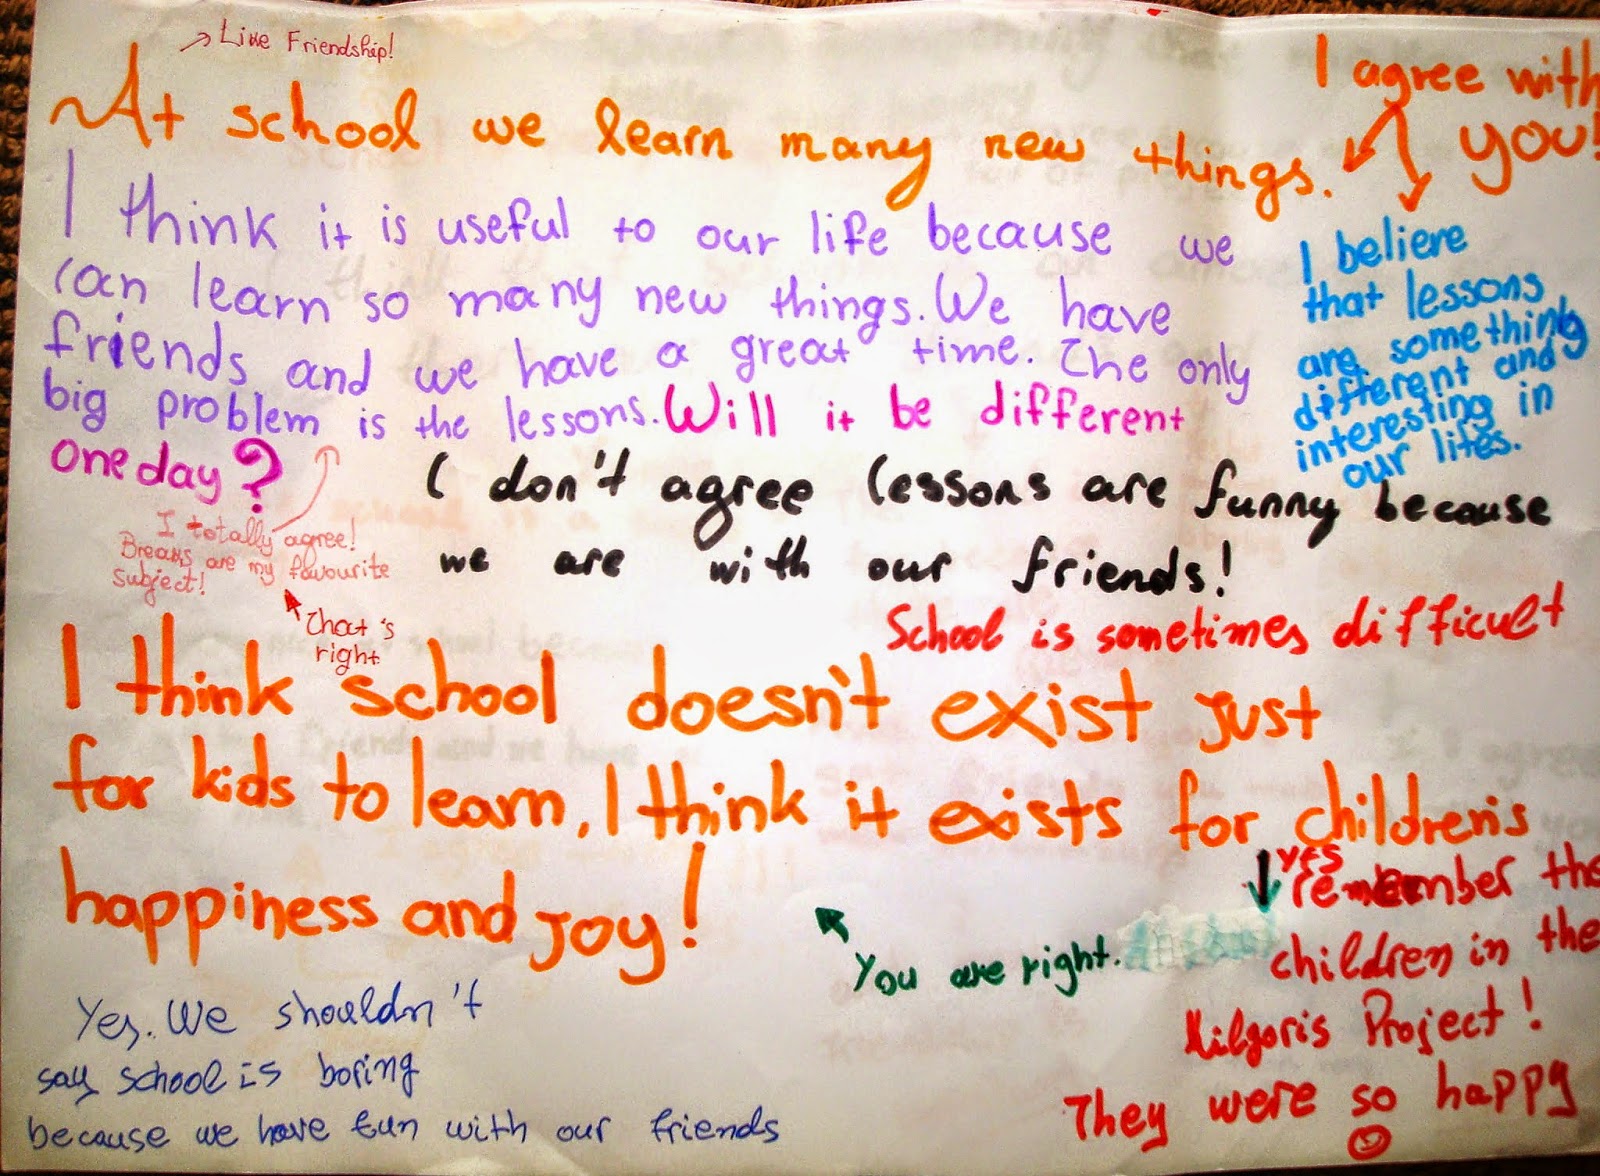 → Like Friendship!
At school we learn many new things.
I agree with
you!
I think it is useful to our life because we
can learn so many new things. We have
friends and we have a great time. The only
big problem is the lessons. Will it be different
one day?
I believe
that lessons
are something
different and
interesting in
our lifes.
I totally agree!
Breaks are my favourite
subject!
That's
right
I don't agree lessons are funny because
we are with our friends!
School is sometimes difficult
I think school doesn't exist just
for kids to learn, I think it exists for children's
happiness and joy!
You are right.
yes
remember the
children in the
Kilgoris Project!
They were so happy
Yes. We shouldn't
say school is boring
because we have fun with our friends